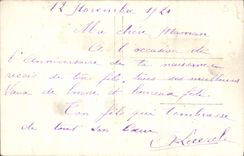 12 Novembre 1921
Ma chère Maman
A l'occasion de
l'anniversaire de ta naissance
reçois de ton fils ses meilleurs
vœux de bonne et heureuse fête
Ton fils qui t'embrasse
de tout son cœur